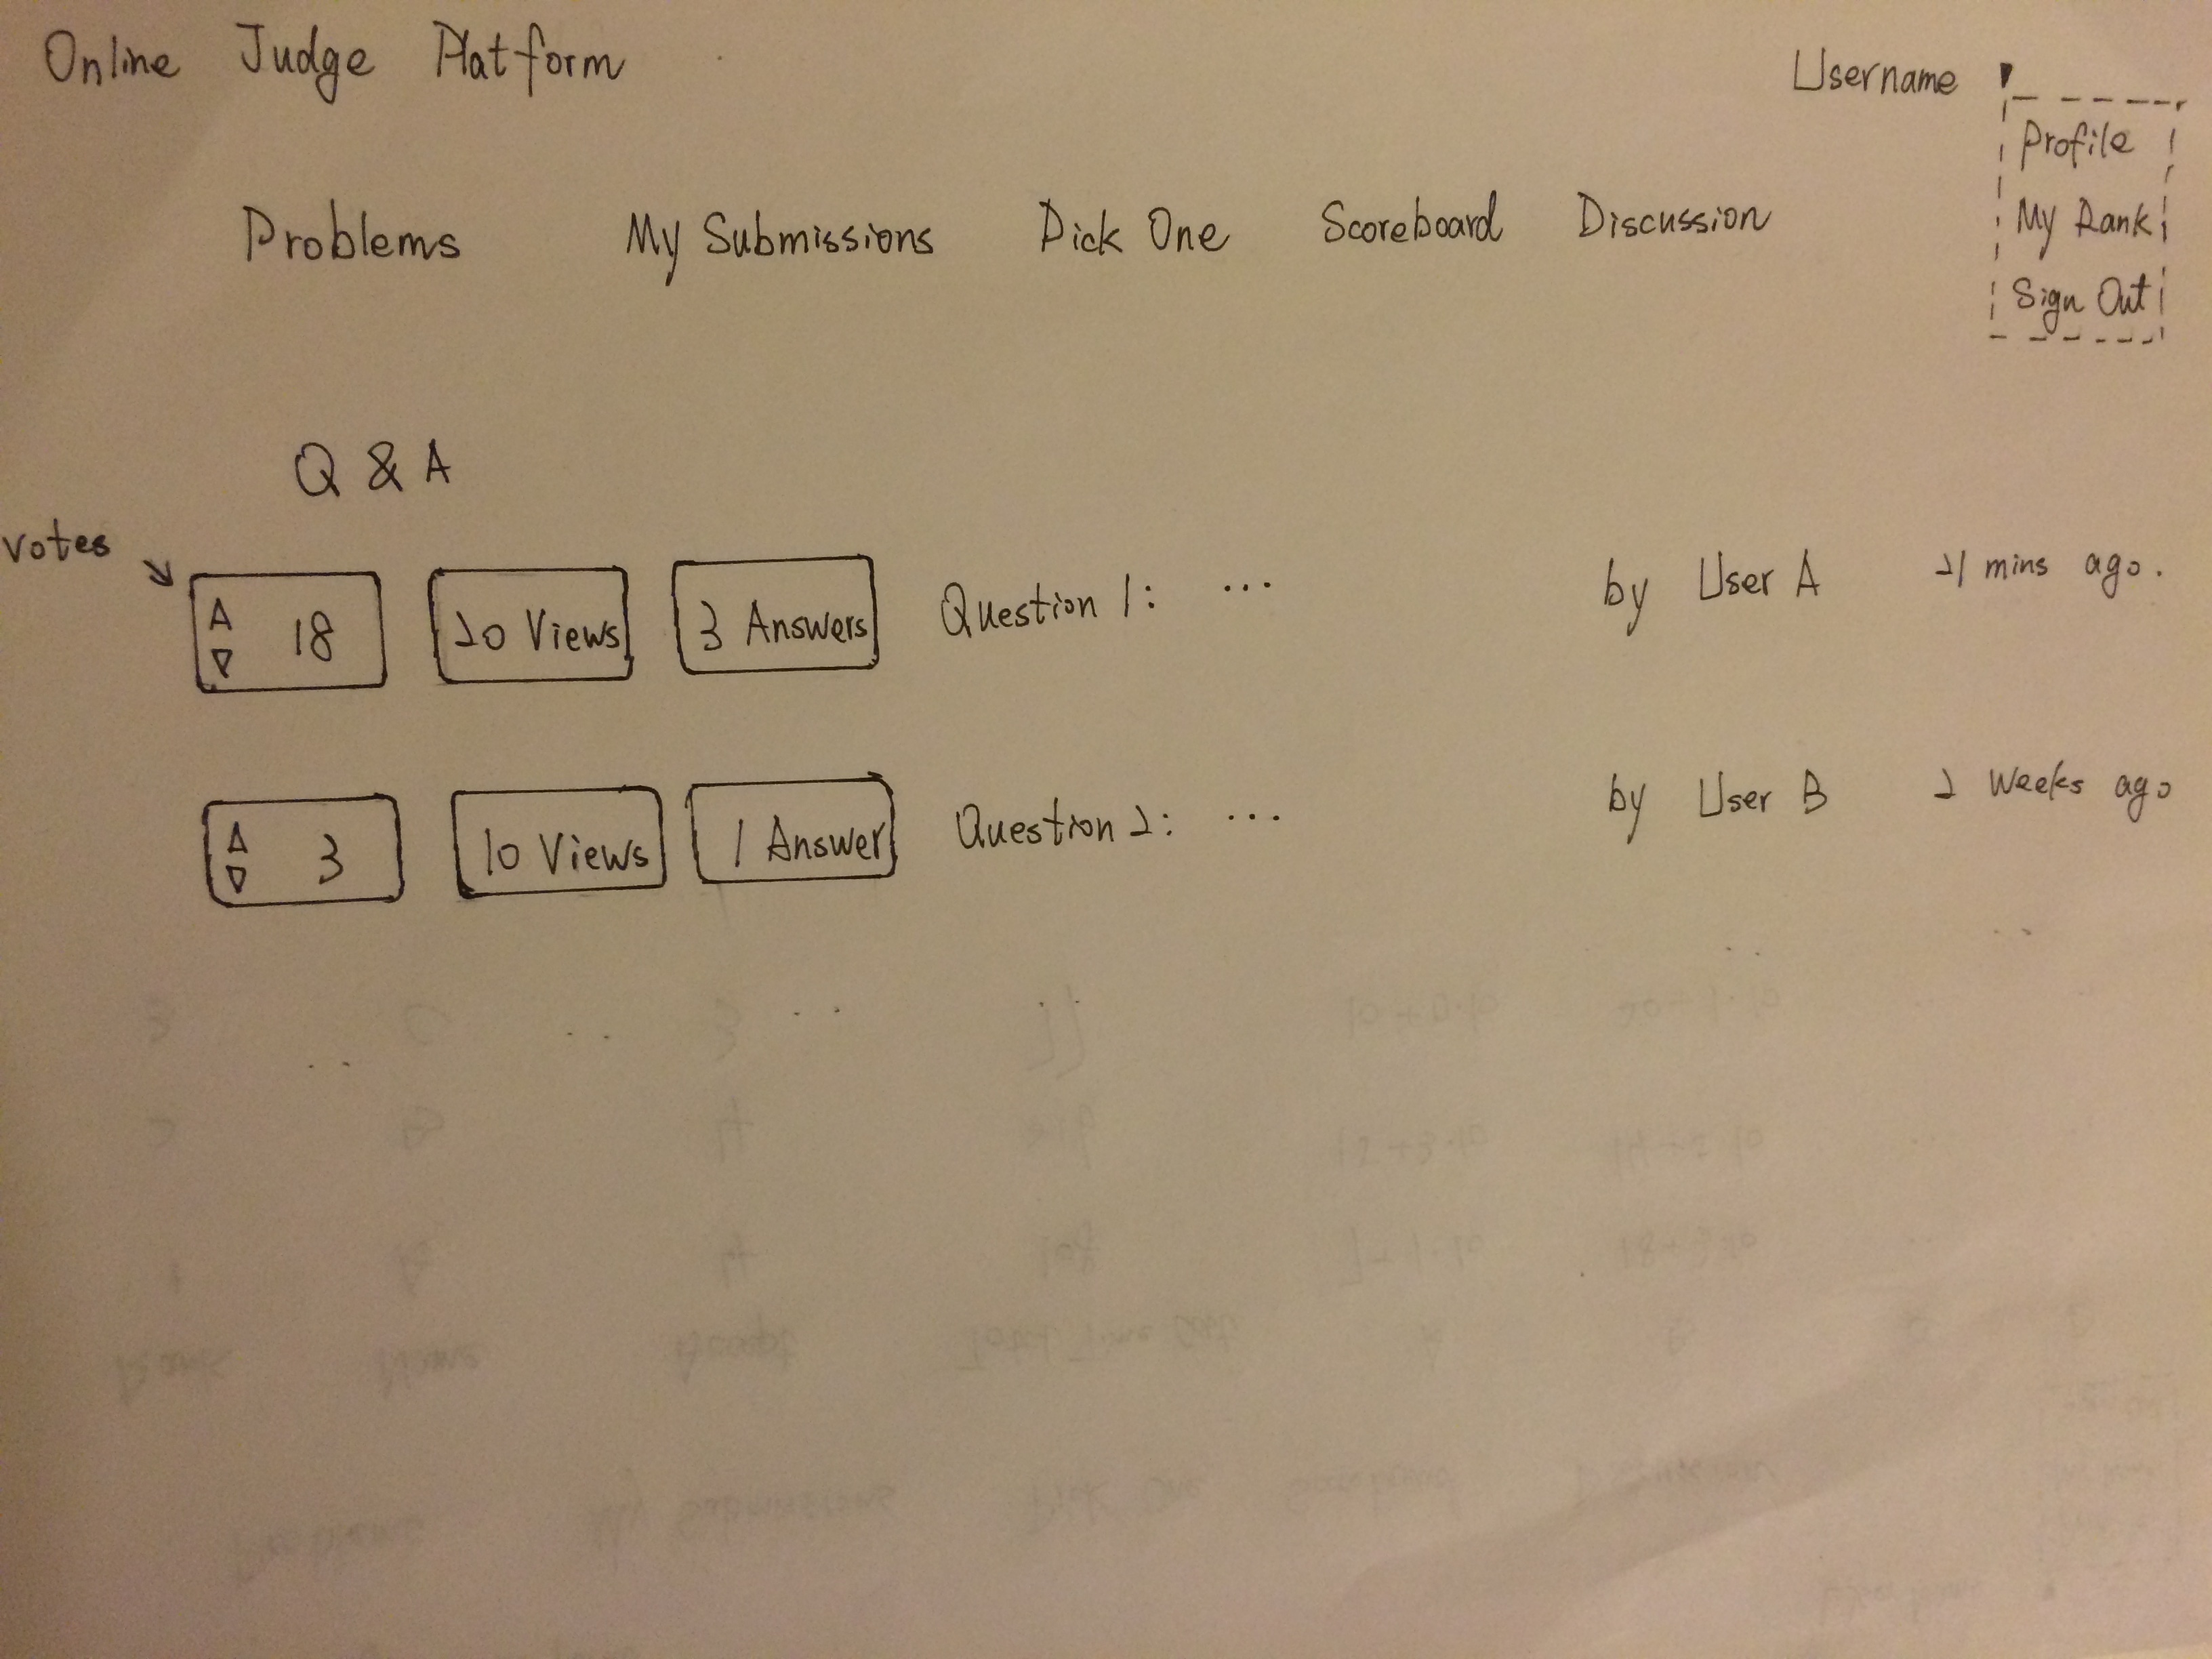 Online Judge Platform
Username
Profile
My Rank
Sign Out
Problems My Submissions Pick One Scoreboard Discussion
Q & A
votes
18 20 Views 3 Answers Question 1: ... by User A 21 mins ago.
3 10 Views 1 Answer Question 2: ... by User B 2 weeks ago